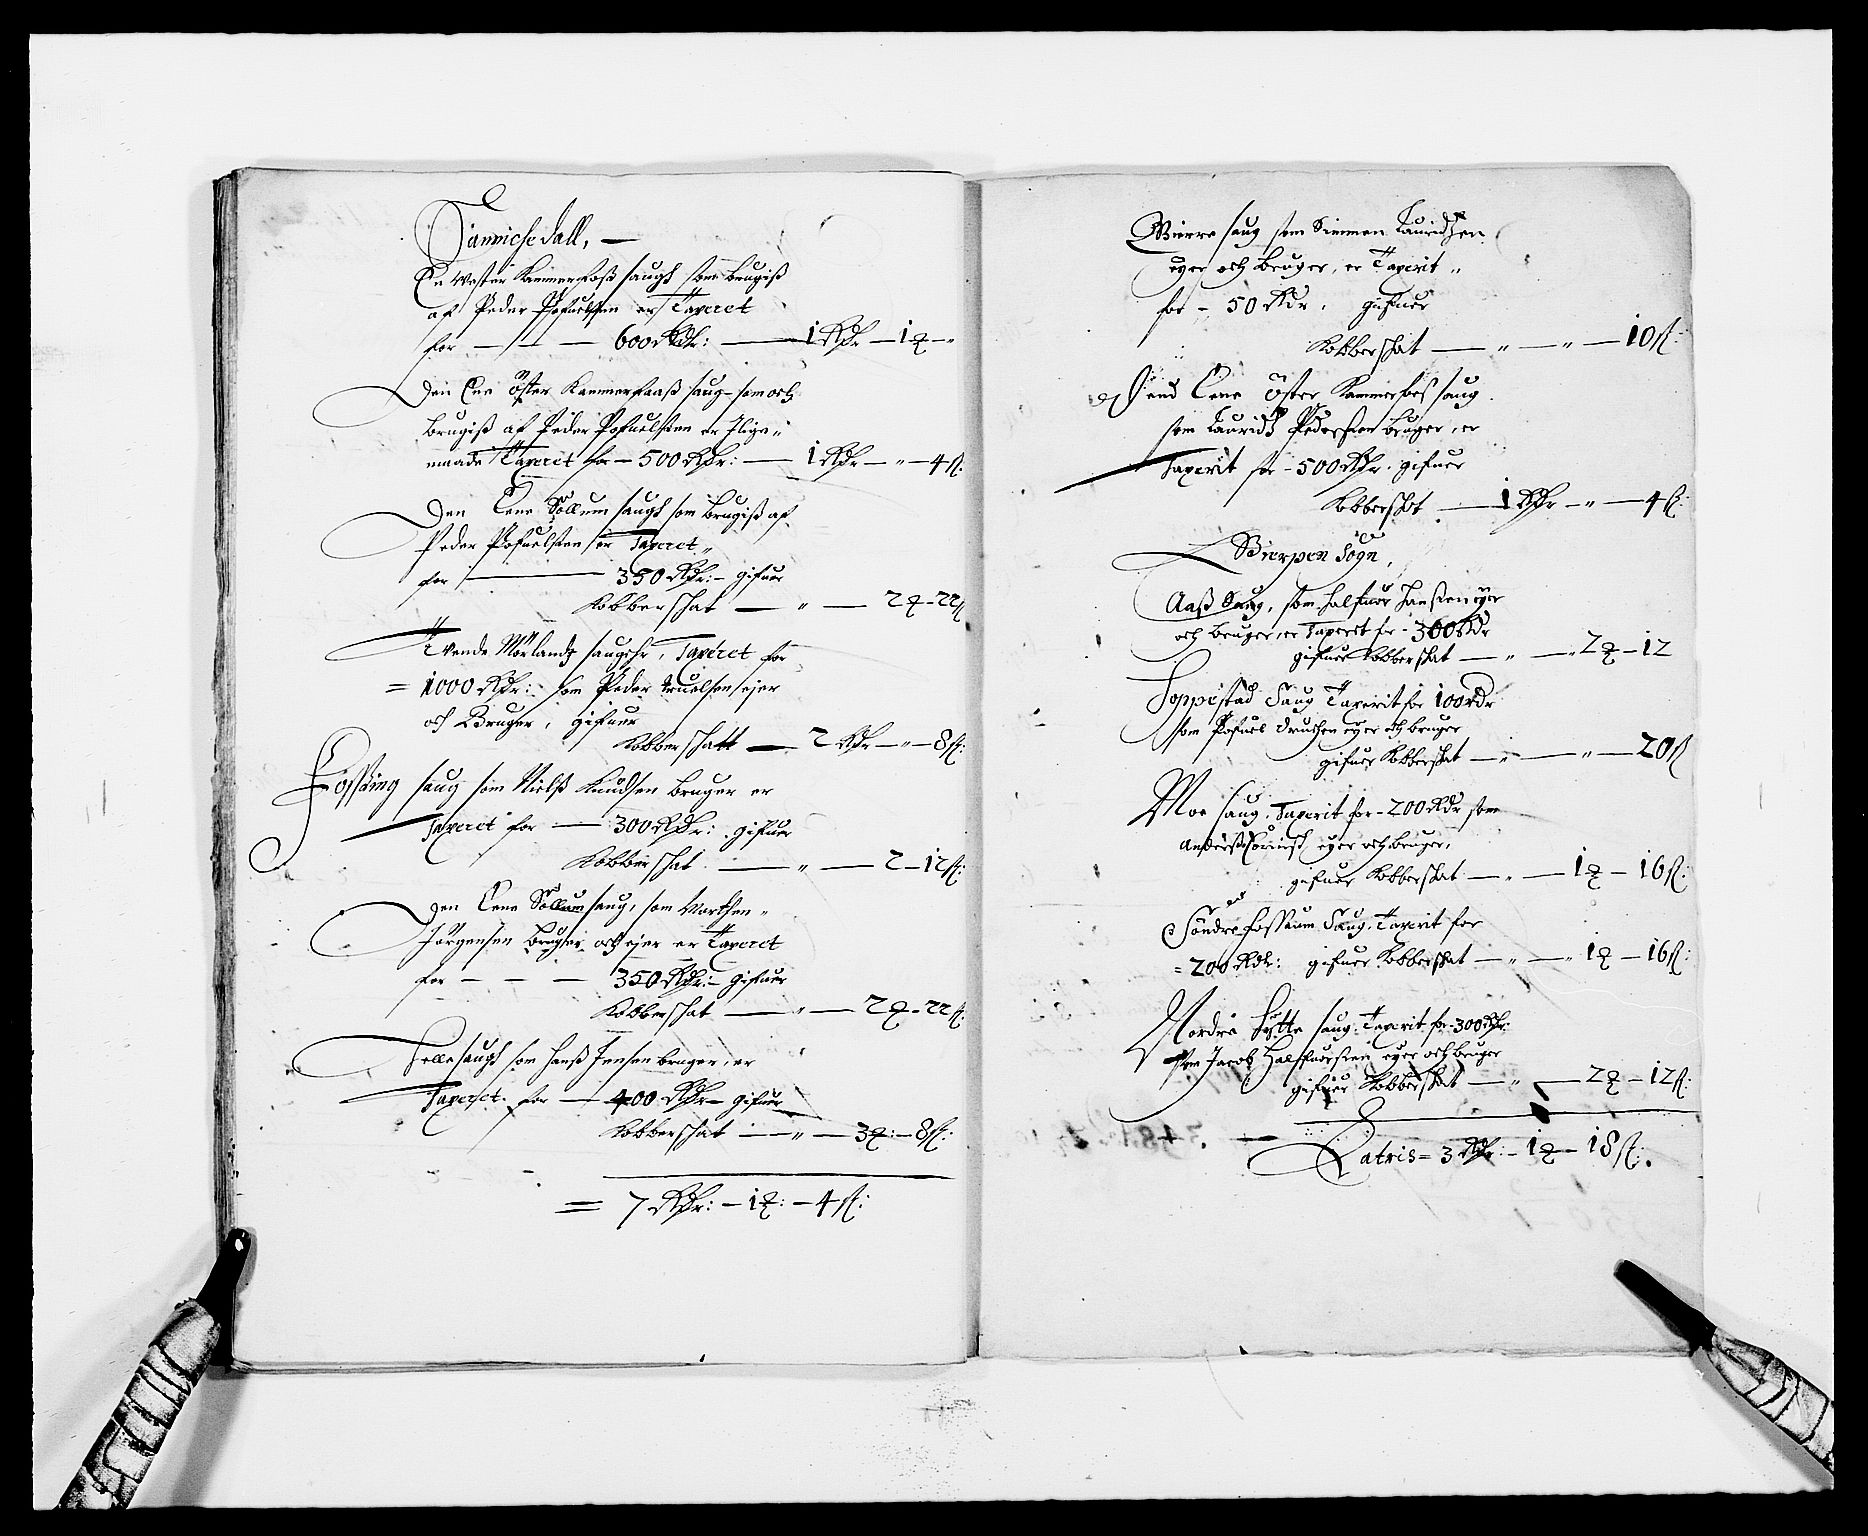 Sannichedall, —
En Wester Kammerfoß saugh som brugiß
af Peder Pofuelssen er Taxeret
for — — — 600 Rdr: — 1 Rdr — 1 ȹ — "
Den Ene Öster Kammerfaaß saug som och
brugiß af Peder Pofuelssen er Ilige
maade Taxeret for — 500 Rdr: — 1 Rdr — " — 4 ß:
Den Eene Söllum saugh som brugiß af
Peder Pofuelssen er Taxeret "
for — 350 Rdr: — gifuer
Kobberschat — " — 2 ȹ - 22 ß
Tvende Mörlandz saugehr, Taxeret for
= 1000 Rdr: som Peder Truelsen ejer
och Bruger, gifuer
Kobberschatt — 2 Rdr — " — 8 ß:
Fossing saug som Nielß Knudsen bruger er
Taxeret for — 300 Rdr: gifuer
Kobberschat — " — 2 — 12 ß:
Den Eene Söllum saug, som Morthen "
Jörgensen bruger och ejer er Taxeret
for — — — 350 Rdr: — gifuer
Kobberschat — " — 2 ȹ - 22 ß:
Felle saugh som Hanß Jensen bruger, er
Taxeret for — 400 Rdr — gifuer
Kobberschat — " — 3 ȹ: — 8 ß:
= 7 Rdr: — 1 ȹ: — 4 ß:
Bierre saug som Simmen Lauridtzen
eyer och bruger, er Taxerit "
for - 50 Rdr. gifuer
Kobberschat — " — " — 10 ß:
Dend Eene Öster Kammerfos saug
som Lauridtz Pederssen bruger, er
Taxerit for - 500 Rdr. gifuer
Kobberschat — 1 Rdr — " — 4 ß:
Bierpen Sogn,
Aaß Saug, som Halfuor Hanssen eyer
och bruger, er Taxeret for - 300 Rdr
gifuer Kobberschat — " — " 2 ȹ — 12
Soppestad Saug Taxerit for 100 rdr
som Pofuel eyer och bruger
gifuer Kobberschat — " — " — 20 ß
Moe saug, Taxerit for - 200 Rdr som
Anderß eyer och bruger,
gifuer Kobberschat — " — 1 ȹ — 16 ß:
Söndre Fossum Saug, Taxerit for
= 200 Rdr: gifuer Kobberschat — " — " 1 ȹ — 16 ß:
Nordre Hytte saug Taxerit for 300 Rdr:
som Jacob Halfuorssen eyer och bruger
gifuer Kobberschat — " — 2 ȹ — 12 ß:
Latris = 3 Rdr: — 1 ȹ — 18 ß:.